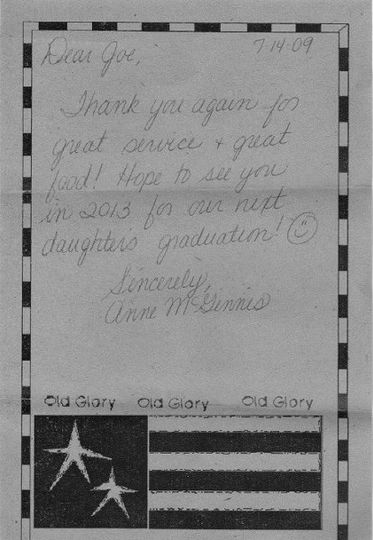 Dear Joe,
7-14-09
Thank you again for
great service + great
food! Hope to see you
in 2013 for our next
daughter's graduation!
Sincerely,
Anne McGinnis
Old Glory Old Glory Old Glory